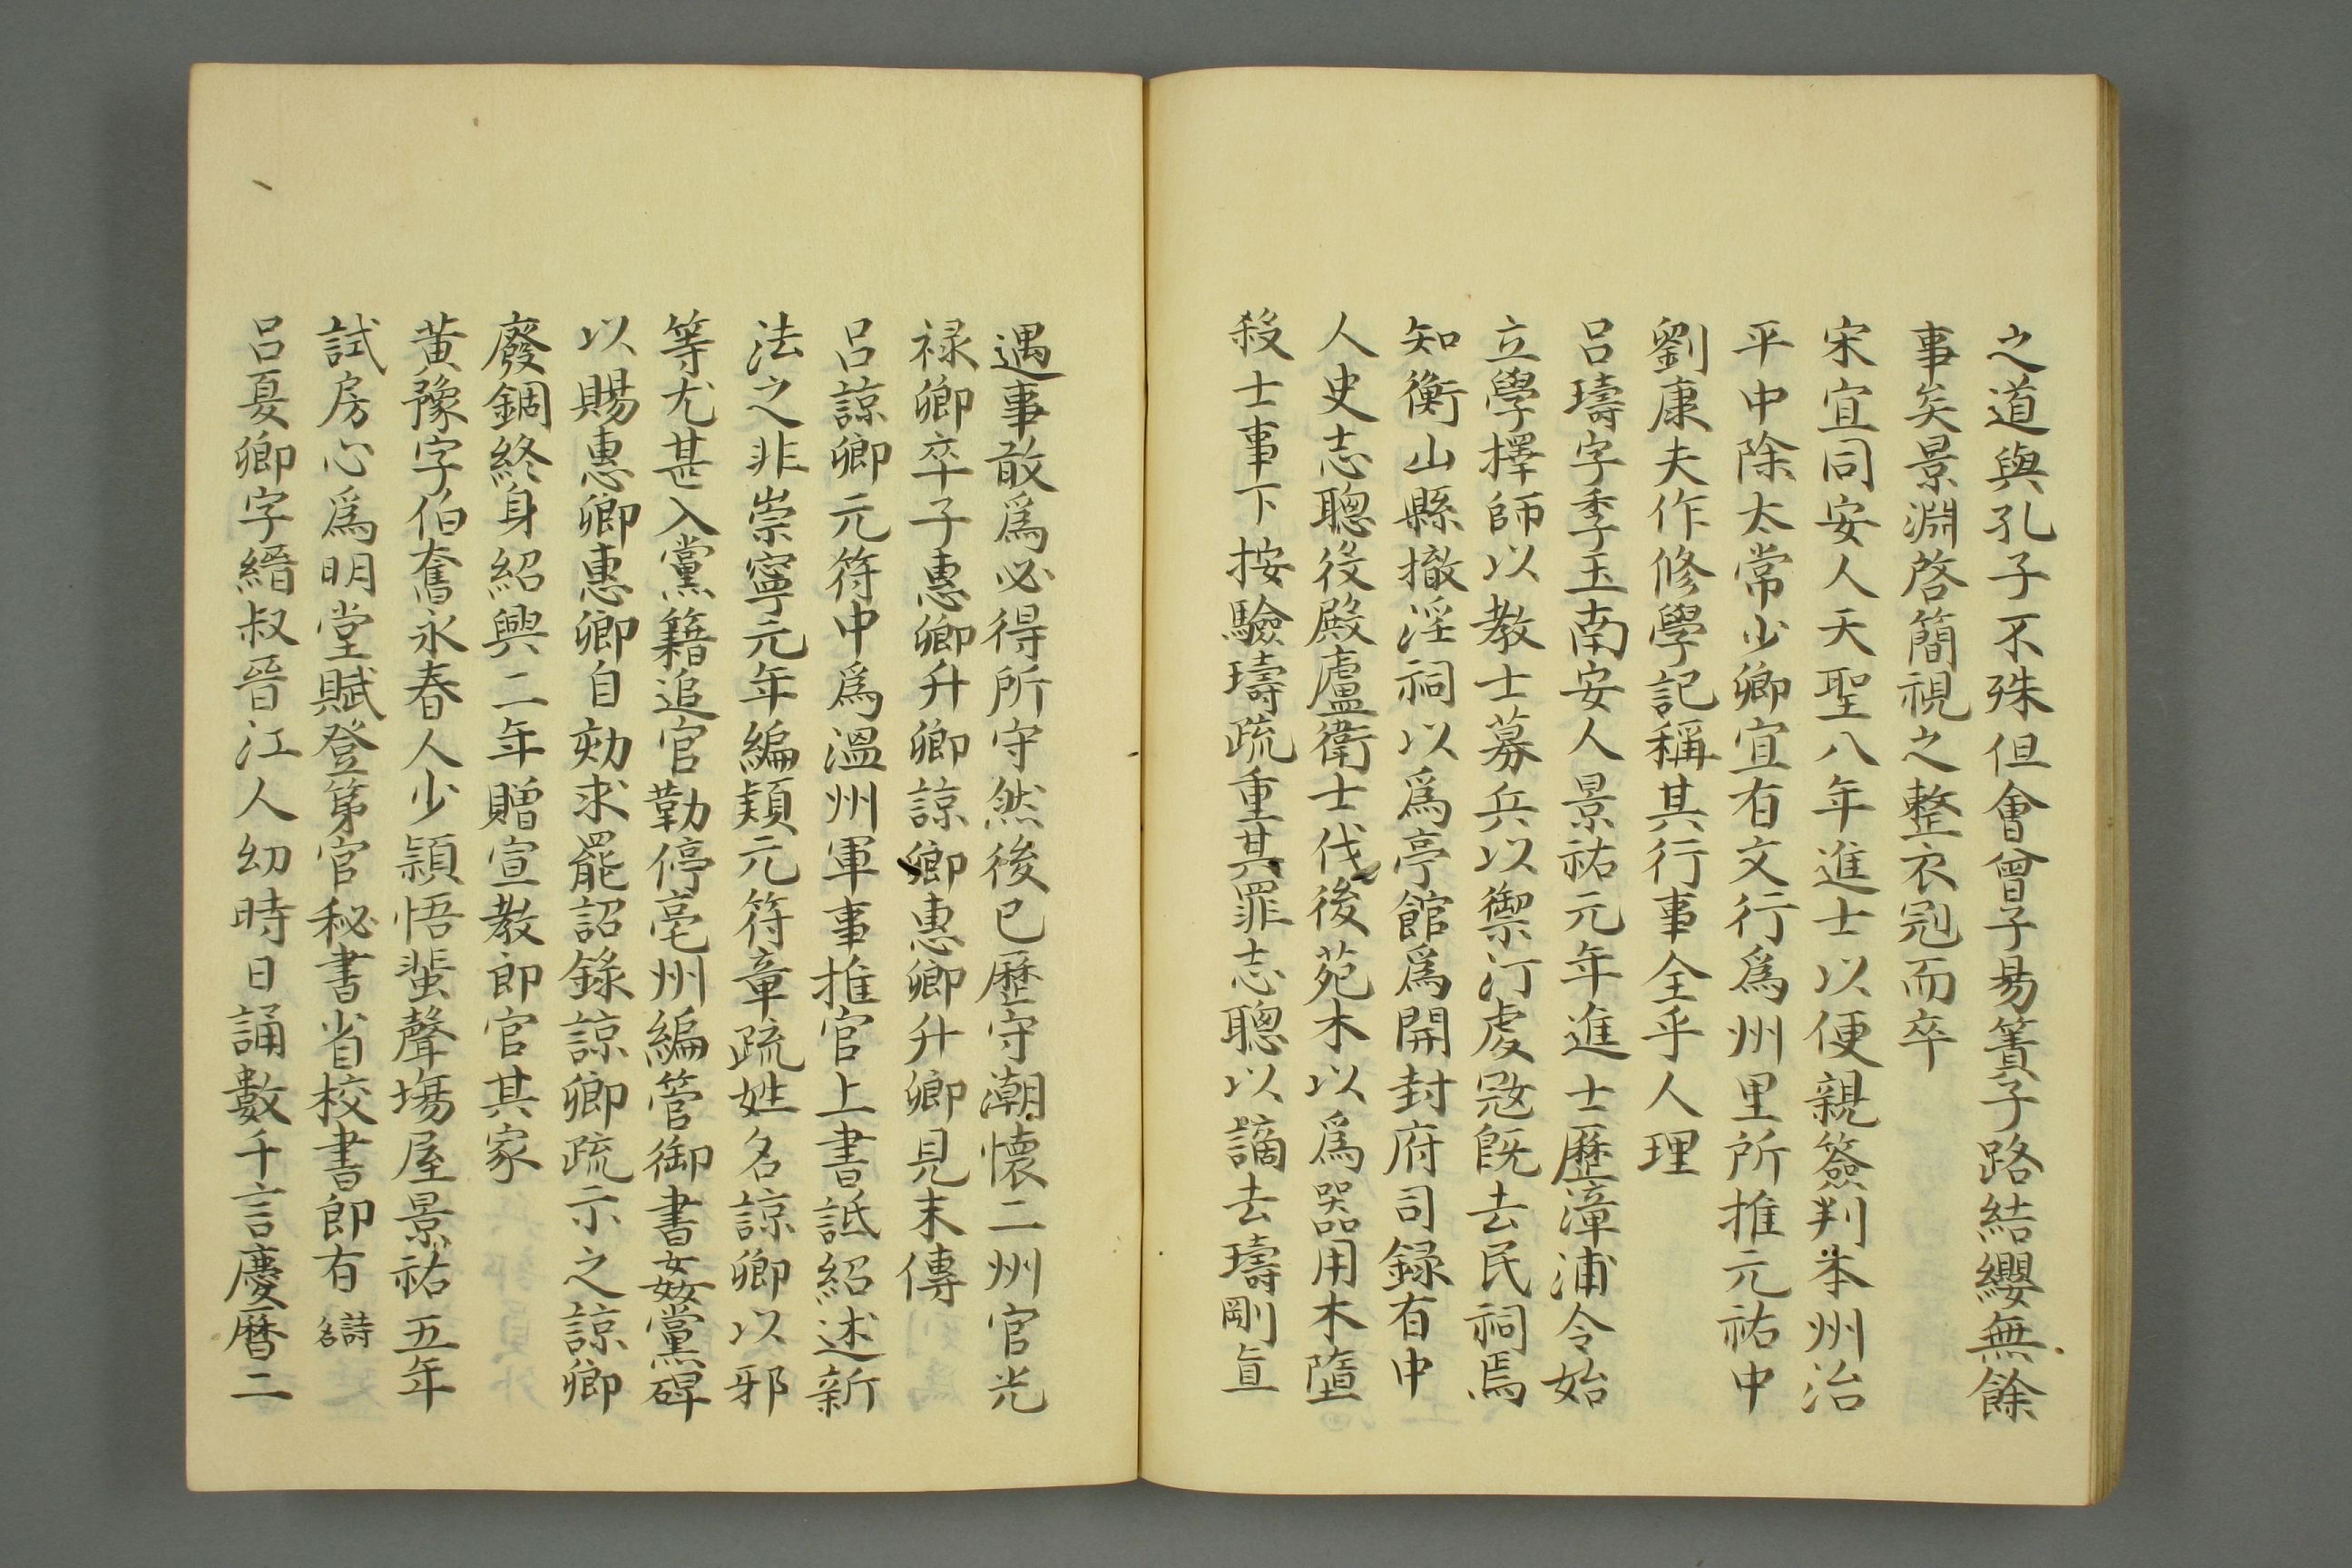 之道與孔子不殊但會曾子易簀子路結纓無餘
事矣景淵啓簡視之整衣冠而卒
宋宜同安人天聖八年進士以便親簽判本州治
平中除太常少卿宜有文行爲州里所推元祐中
劉康夫作修學記稱其行事全乎人理
呂璹字季玉南安人景祐元年進士歷漳浦令始
立學擇師以教士募兵以禦汀虔寇旣去民祠焉
知衡山縣撤淫祠以爲亭館爲開封府司録有中
人史志聰役殿盧衛士伐後苑木以爲器用木墮
殺士事下按驗璹疏重其罪志聰以謫去璹剛直
遇事敢爲必得所守然後已歷守潮懷二州官光
禄卿卒子惠卿升卿諒卿惠卿升卿見末傳
呂諒卿元符中爲溫州軍事推官上書詆紹述新
法之非崇寧元年編類元符章疏姓名諒卿以邪
等尤甚入黨籍追官勒停亳州編管御書姦黨碑
以賜惠卿惠卿自劾求罷詔錄諒卿疏示之諒卿
廢錮終身紹興二年贈宣教郎官其家
黃豫字伯奮永春人少穎悟蜚聲塲屋景祐五年
試房心爲明堂賦登第官秘書省校書郎有詩名
呂夏卿字縉叔晉江人幼時日誦數千言慶曆二